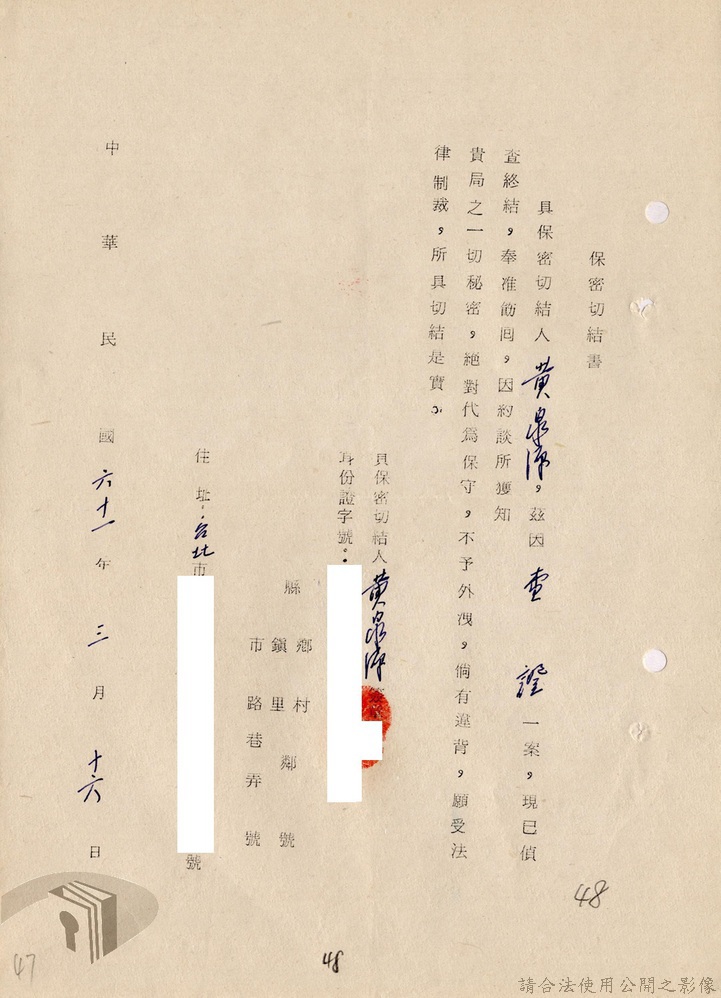 保密切結書
具保密切結人黄泉源，茲因查證一案，現已偵
查終結，奉准飭回，因約談所獲知
貴局之一切秘密，絕對代為保守，不予外洩，倘有違背，願受法
律制裁，所具切結是實。
具保密切結人黄泉源
身份證字號：
縣鄉村鄰號
鎮里
市路巷弄號
住址：台北市
號
中華民國六十一年三月十六日
48
48
47
請合法使用公開之影像